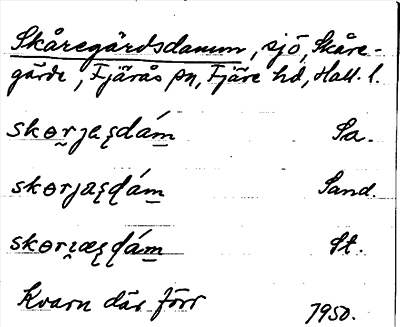 Skåregärdsdamm, sjö, Skåre-
gärde, Fjärås sn, Fjäre hd, Hall. l.
skɵr̰jæʂdám̱ Sa.
skɵrjæʂɖám̱ Sand.
skɵri̯æʂɖám̱ St.
Kvarn där förr 1950.